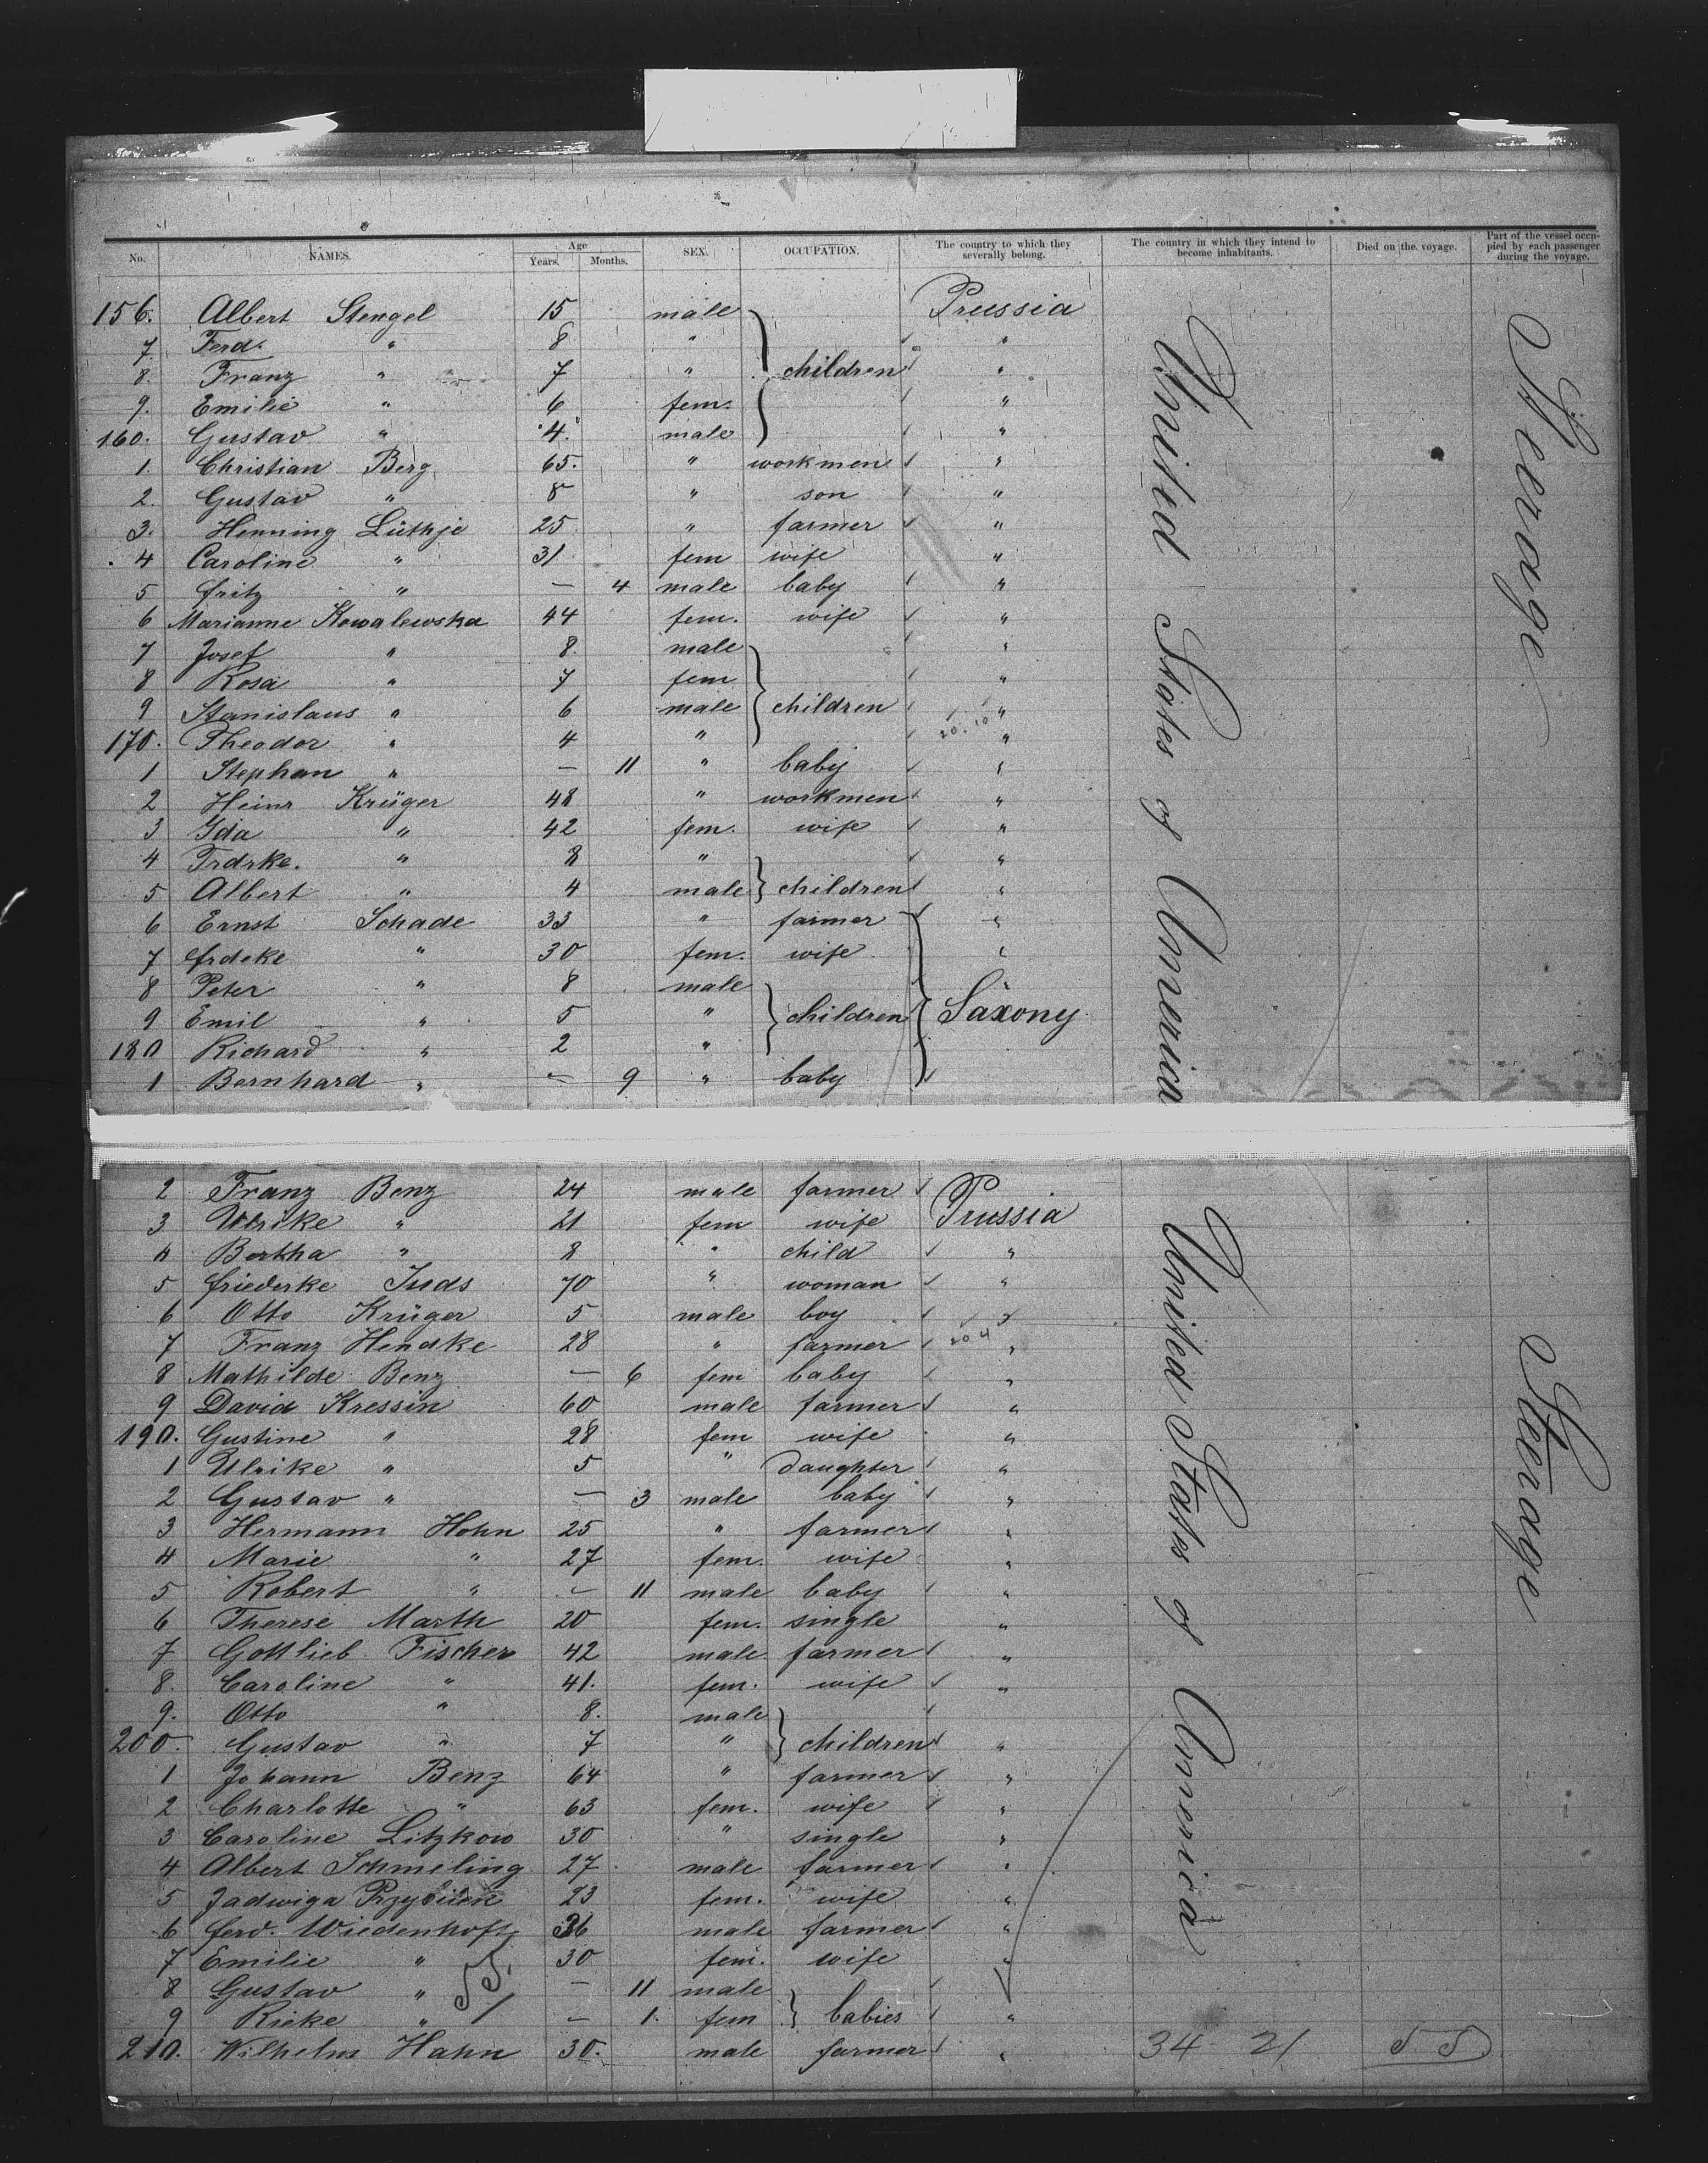 No. NAMES. Age Years. Months. SEX. OCCUPATION. The country to which they severally belong. The country in which they intend to become inhabitants. Died on the voyage. Part of the vessel occupied by each passenger during the voyage.
156. Albert Stengel 15 male Prussia
7. Ferd. " 8 " "
8. Franz " 7 " children "
9. Emilie " 6 fem. "
160. Gustav " 4. male "
1. Christian Berg 65. " workmen "
2. Gustav " 8 " son "
3. Henning Lüthje 25 " farmer "
4 Caroline " 31 fem wife "
5 Fritz " — 4 male baby "
6 Marianne Kowalewska 44 fem. wife "
7 Josef " 8. male "
8 Rosa " 7 fem "
9 Stanislaus " 6 male children "
170. Theodor " 4 " 20.10 "
1 Stephan " — 11 " baby "
2 Heinr Krüger 48 " workmen "
3 Ida " 42 fem. wife "
4 Frdrke. " 8 " "
5 Albert " 4 male children "
6 Ernst Schade 33 " farmer "
7 Frdeke " 30 fem. wife "
8 Peter " 8 male "
9 Emil " 5 " children Saxony
180 Richard " 2 "
1 Bernhard " — 9 " baby
United States of America
Steerage
2 Franz Benz 24 male farmer Prussia
3 Ulrike " 21 fem wife
4 Bertha " 8 " child "
5 Friederke Juds 70 " woman "
6 Otto Krüger 5 male boy "
7 Franz Hendke 28 " farmer 20 4 "
8 Mathilde Benz — 6 fem baby "
9 David Kressin 60 male farmer "
190. Gustine " 28 fem wife "
1 Ulrike " 5 " daughter "
2 Gustav " — 3 male baby "
3 Hermann Hohn 25 " farmer "
4 Marie " 27 fem. wife "
5 Robert " — 11 male baby "
6 Therese Marth 20 fem. single "
7 Gottlieb Fischer 42 male farmer "
8. Caroline " 41. fem. wife "
9. Otto " 8. male
200. Gustav " 7 " children "
1 Johann Benz 64 " farmer "
2 Charlotte " 63 fem. wife "
3 Caroline Litzkow 30 " single "
4 Albert Schmeling 27 male farmer "
5 Jadwiga 23 fem. wife "
6 Ferd. Wiedenhoft 36 male farmer "
7 Emilie " 30 fem. wife "
8 Gustav " — 11 male
9 Rieke " — 1. fem babies "
210. Wilhelm Hahn 30. male farmer " 34 21 55
United States of America
Steerage